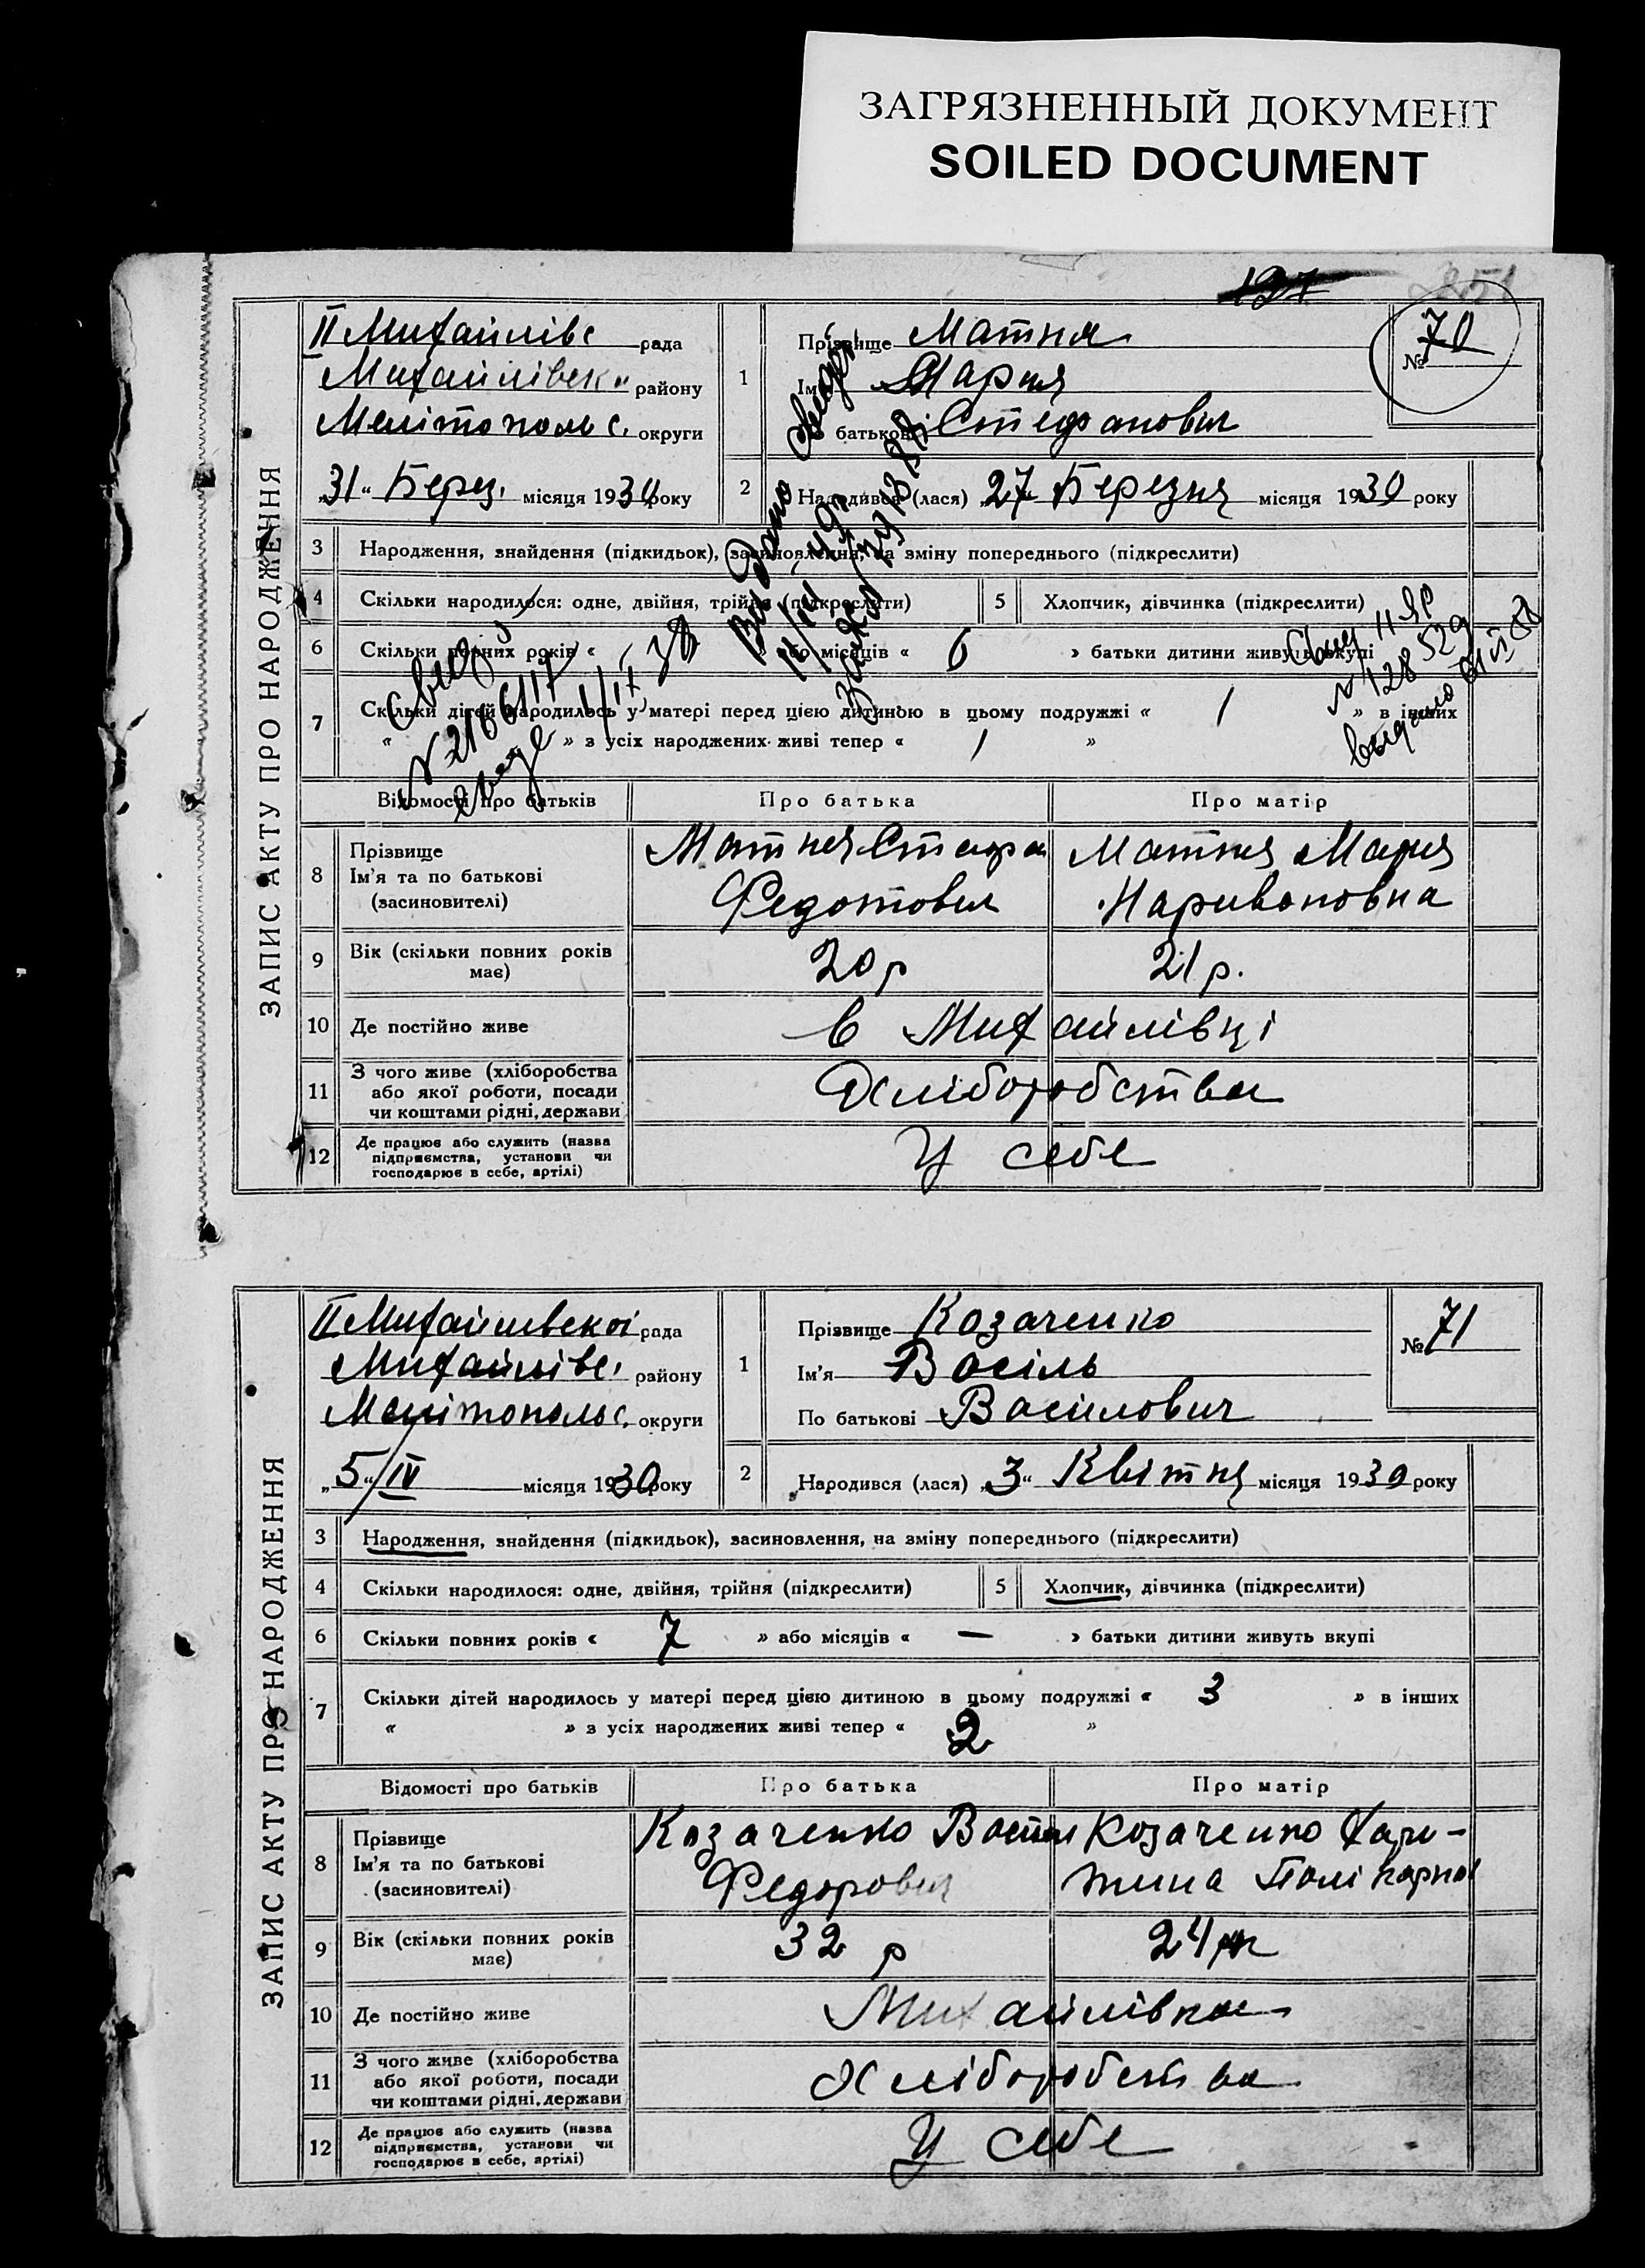 ЗАГРЯЗНЕННЫЙ ДОКУМЕНТ
SOILED DOCUMENT
127
251
ЗАПИС АКТУ ПРО НАРОДЖЕННЯ
ІІ Михайлівс рада
Михайлівськ району
Мелітопольс. округи
„31“ Берез. місяця 1930 року
1
Прізвище Матня
Ім'я Мария
По батькові Стефановна
№ 70
2
Народився (лася) „27 Березня місяця 1930 року
3 Народження, знайдення (підкидьок), засиновлення, на зміну попереднього (підкреслити)
4 Скільки народилося: одне, двійня, трійня (підкреслити)
5 Хлопчик, дівчинка (підкреслити)
6 Скільки повних років « » або місяців « 6 » батьки дитини живуть вкупі
7 Скільки дітей народилось у матері перед цією дитиною в цьому подружжі « 1 » в інших
« » з усіх народжених живі тепер « 1 »
Видано
Свид
№ 2166117
№ 128529
выдано
Відомості про батьків Про батька Про матір
8 Прізвище
Ім'я та по батькові
(засиновителі)
Матня Стефан
Федотович
Матня Мария
9 Вік (скільки повних років
має)
20 р
21 р.
10 Де постійно живе
в Михайлівці
11 З чого живе (хліборобства
або якої роботи, посади
чи коштами рідні, держави
Хліборобства
12 Де працює або служить (назва
підприємства, установи чи
господарює в себе, артілі)
У себе
ЗАПИС АКТУ ПРО НАРОДЖЕННЯ
ІІ Михайлівської рада
Михайлівс. району
Мелітопольс. округи
„5“/IV місяця 1930 року
1
Прізвище Козаченко
Ім'я Васіль
По батькові Василович
№ 71
2
Народився (лася) „3“ Квітня місяця 1930 року
3 Народження, знайдення (підкидьок), засиновлення, на зміну попереднього (підкреслити)
4 Скільки народилося: одне, двійня, трійня (підкреслити)
5 Хлопчик, дівчинка (підкреслити)
6 Скільки повних років « 7 » або місяців « — » батьки дитини живуть вкупі
7 Скільки дітей народилось у матері перед цією дитиною в цьому подружжі « 3 » в інших
« » з усіх народжених живі тепер « 2 »
Відомості про батьків Про батька Про матір
8 Прізвище
Ім'я та по батькові
(засиновителі)
Козаченко
Федорович
Козаченко Хари-
тина Полікарпов
9 Вік (скільки повних років
має)
32 р
24
10 Де постійно живе
Михайлівка
11 З чого живе (хліборобства
або якої роботи, посади
чи коштами рідні, держави
Хліборобства
12 Де працює або служить (назва
підприємства, установи чи
господарює в себе, артілі)
У себе